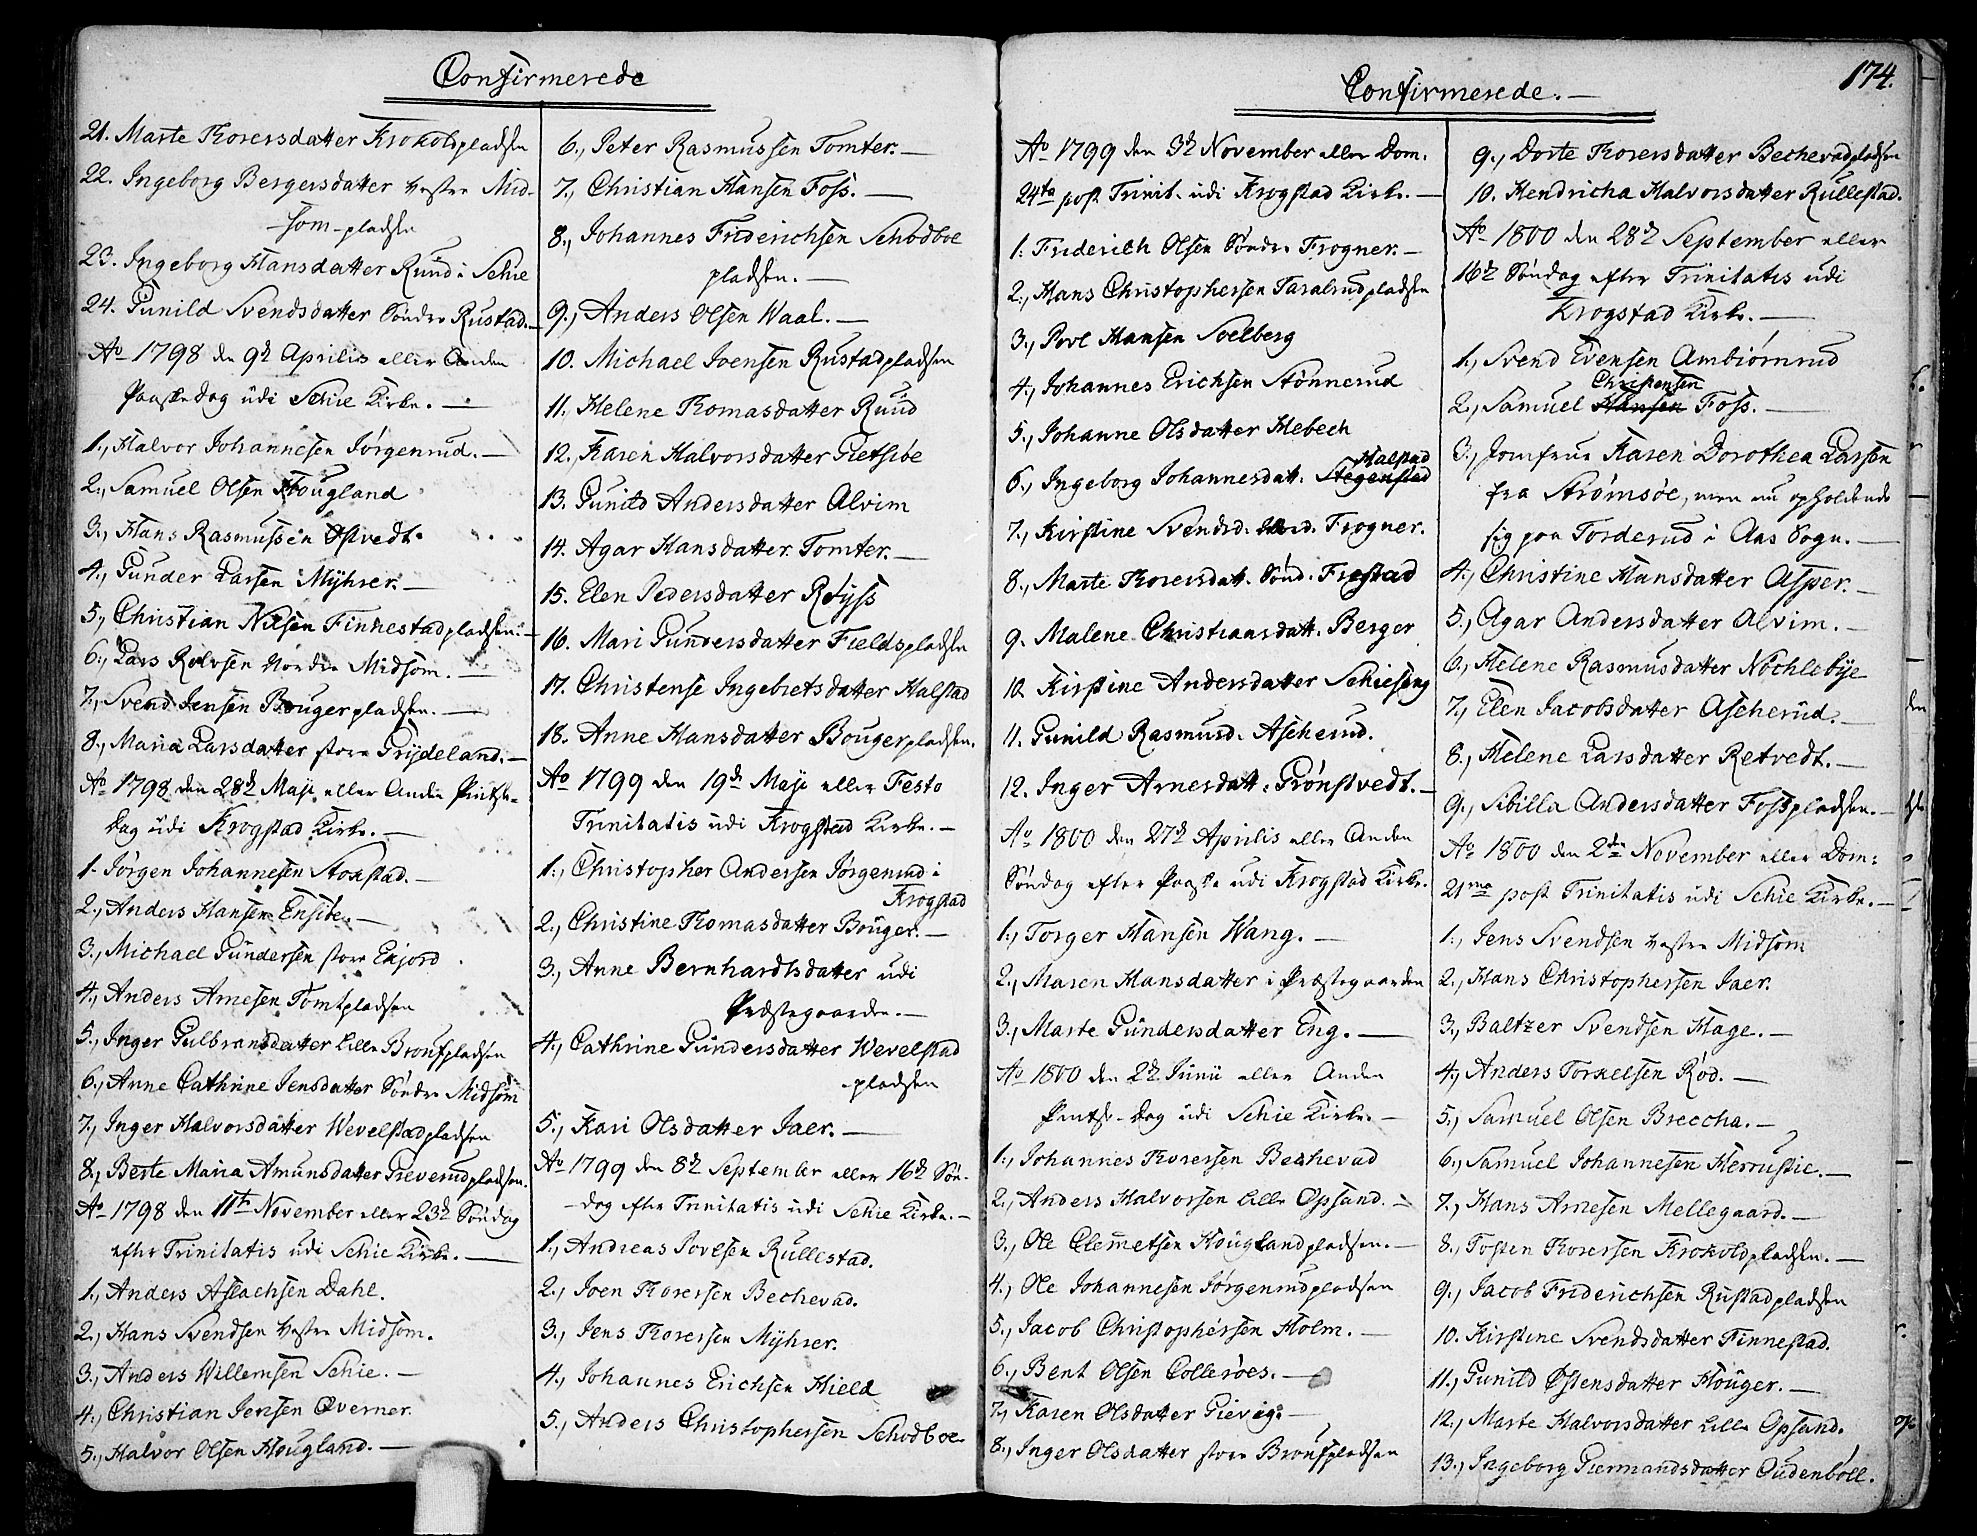 Confirmerede
21. Marte Thorersdatter Krokolspladsen
22. Ingeborg Bergersdatter Vestre Mid-
som-pladsen
23. Ingeborg Hansdatter Ruud i Schie
24. Gunild Svendsdatter Søndre Rustad.
Ao 1798 den 9de Aprilis eller Anden
Paaske Dag udi Schie Kirke.
1., Halvor Johannesen Jørgenrud.
2., Samuel Olsen Hougland
3., Hans Rasmussen Østvedt.
4., Gunder Larsen Myhrer.
5., Christian Nilsen Finnestadpladsen.
6., Lars Rolvsen Nordre Midsom.
7., Svend Jensen Bougerpladsen.
8., Maria Larsdatter store Grydeland.
Ao 1798 den 28de Maji eller Anden Pintse-
Dag udi Krogstad Kirke.
1. Jørgen Johannesen Stokstad.
2., Anders Hansen Ensibe.
3., Michael Gundersen store Enjord
4., Anders Arnesen Tomtpladsen
5., Inger Gulbransdatter lille Bronspladsen
6., Anne Cathrine Jensdatter Søndre Midsom
7., Inger Halvorsdatter Wevelstadpladsen
8., Berte Maria Amundsdatter Greverudpladsen.
Ao 1798 den 11te November eller 23de Søndag
efter Trinitatis udi Schie Kirke.
1., Anders Aslachsen Dahl.
2., Hans Svendsen Vestre Midsom.
3., Anders Willemsen Schie.
4., Christian Jensen Qverner.
5., Halvor Olsen Hougland.
6., Peter Rasmussen Tomter.
7., Christian Hansen Foss.
8., Johannes Friderichsen Schodboe
pladsen.
9., Anders Olsen Waal.
10. Michael Joensen Rustadpladsen
11. Helene Thomasdatter Ruud
12., Karen Halvorsdatter Gietsiøe
13. Gunild Andersdatter Alvim
14. Agar Hansdatter Tomter.
15. Elen Pedersdatter Røyss
16. Mari Gundersdatter Fieldspladsen
17. Christense Ingebretsdatter Halstad
18. Anne Hansdatter Bougerpladsen.
Ao 1799 den 19de Maji eller Festo
Trinitatis udi Krogstad Kirke.
1., Christopher Andersen Jørgenrud i
Krogstad
2., Christine Thomasdatter Bouger.
3., Anne Bernhardtsdatter udi
Præstegaarden.
4., Cathrine Gundersdatter Wevelstad
pladsen
5., Kari Olsdatter Jaer.
Ao 1799 den 8de September eller 16de Søn-
dag efter Trinitatis udi Schie Kirke.
1., Andreas Povelsen Rullestad.
2., Joen Thorersen Bechevad.
3., Jens Thorersen Myhrer.
4., Johannes Erichsen Hield
5., Anders Christophersen Schodboe.
Confirmerede.
174.
Ao 1799 den 3de November eller Dom.
24ta post Trinit. udi Krogstad Kirke.
1. Friderich Olsen Søndre Frogner.
2., Hans Christophersen Taralrudpladsen
3., Povl Hansen Soelberg
4., Johannes Erichsen Stønnerud
5., Johanne Olsdatter Hebech
Halstad
6., Ingeborg Johannesdatt. Stegenstad
7., Kirstine Svendsd. Frogner.
8., Marte Thorersdatt. Sønd. Frestad
9. Malene Christiansdatt. Berger
10. Kirstine Andersdatter Schieseng
11. Gunild Rasmusd. Ascherud.
12. Inger Arnesdatt. Grønstvedt.
Ao 1800 den 27de Aprilis eller Anden
Søndag efter Paaske udi Krogstad Kirke.
1., Torger Hansen Wang.
2., Maren Hansdatter i Præstegaarden
3., Marte Gundersdatter Eng.
Ao 1800 den 2de Junii eller Anden
Pintse-Dag udi Schie Kirke.
1., Johannes Thorersen Bechevad
2., Anders Halvorsen lille Opsand.
3., Ole Clemetsen Houglandpladsen.
4., Ole Johannesen Jørgenrudpladsen
5., Jacob Christophersen Holm.
6., Bent Olsen Collerøes.
7., Karen Olsdatter Gievig.
8., Inger Olsdatter store Bronspladsen
9., Dorte Thorersdatter Bechevadpladsen
10. Hendricha Halvorsdatter Rullestad.
Ao 1800 den 28de September eller
16de Søndag efter Trinitatis udi
Krogstad Kirke.
1., Svend Evensen Ambiørnrud
Christensen
2., Samuel Hansen Foss.
3., Jomfrue Karen Dorothea Larsen
fra Strømsøe, men nu opholdende
sig paa Torderud i Aas Sogn.
4., Christine Hansdatter Asper.
5., Agar Andersdatter Alvim.
6., Helene Rasmusdatter Nøchlebye
7., Elen Jacobsdatter Ascherud.
8., Helene Larsdatter Retvedt.
9., Sibilla Andersdatter Fosspladsen.
Ao 1800 den 2den November eller Dom:
21ma post Trinitatis udi Schie Kirke.
1., Jens Svendsen Vestre Midsom
2., Hans Christophersen Jaer.
3., Baltzer Svendsen Hage.
4., Anders Torkelsen Rød.
5., Samuel Olsen Breccha.
6., Samuel Johannesen Herrustie.
7., Hans Arnesen Mellegaard.
8., Tosten Thorersen Krokolspladsen.
9., Jacob Friderichsen Rustadpladsen
10. Kirstine Svendsdatter Finnestad.
11., Gunild Østensdatter Houger.
12., Marte Halvorsdatter lille Opsand.
13., Ingeborg Giermandsdatter Oudenboll.